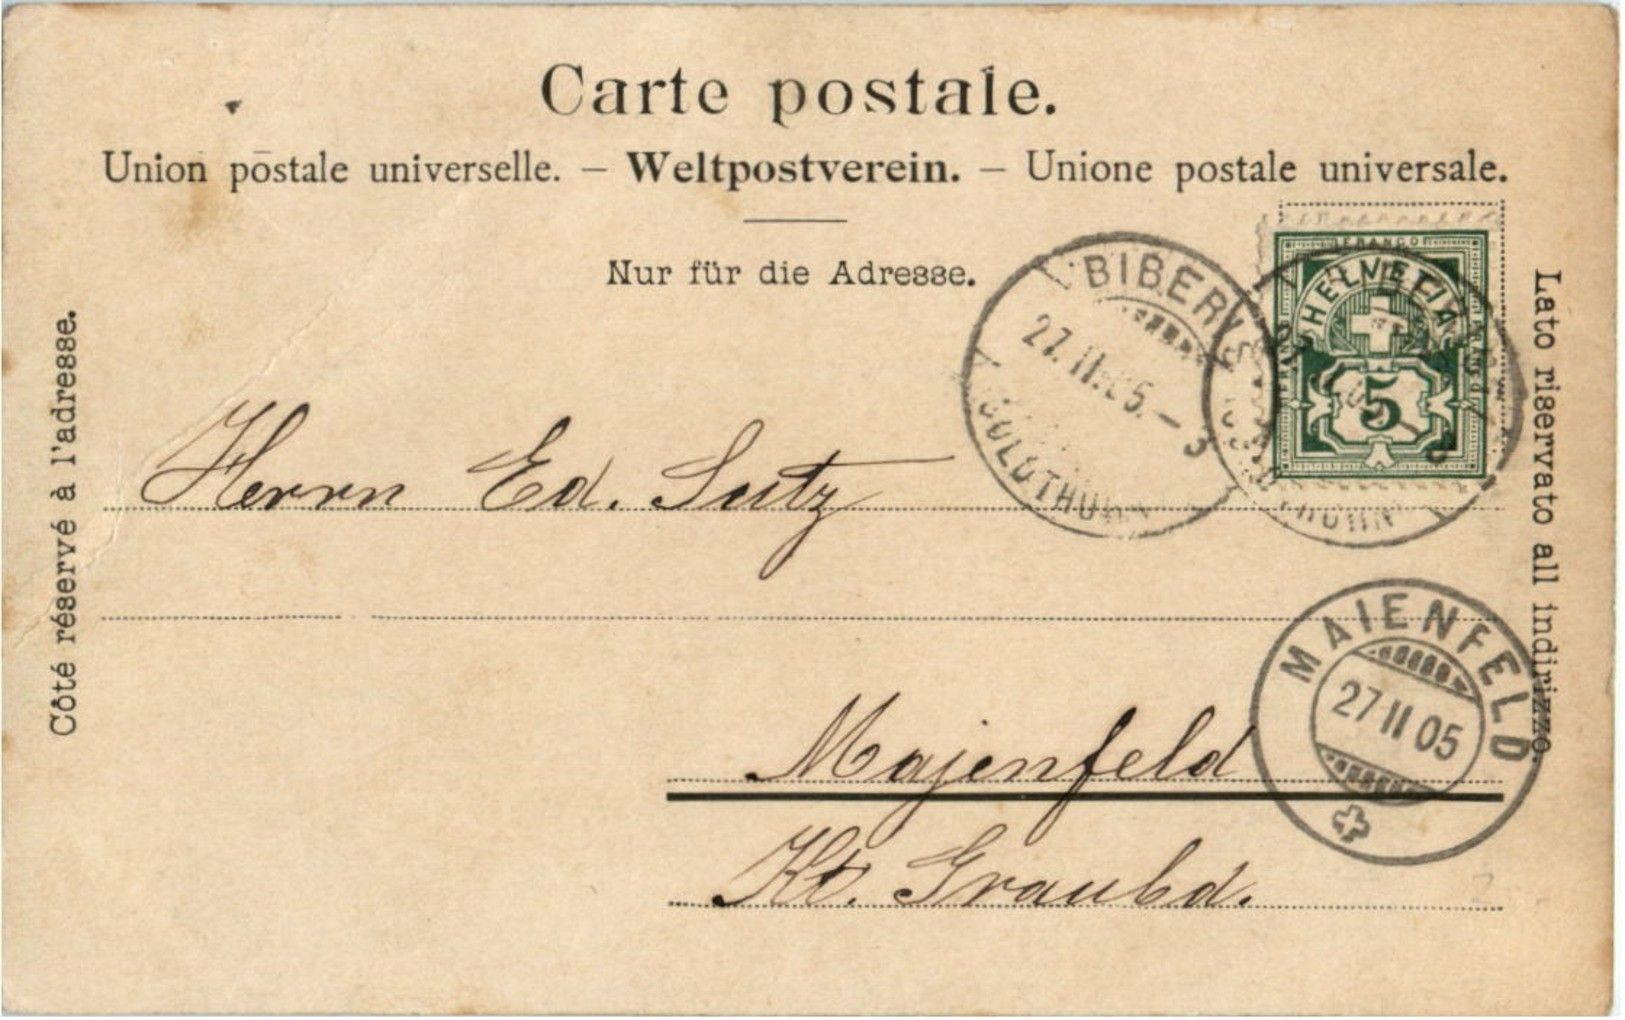 Carte postale.
Union postale universelle. – Weltpostverein. – Unione postale universale.
Nur für die Adresse.
Côté réservé à l'adresse.
Lato riservato all indirizzo.
BIBERIS
27.II.05.–3
SOLOTHURN
FRANCO
HELVETIA
5
Herrn Ed. Lutz
Majenfeld
Kt. Graubd.
MAIENFELD
27 II 05